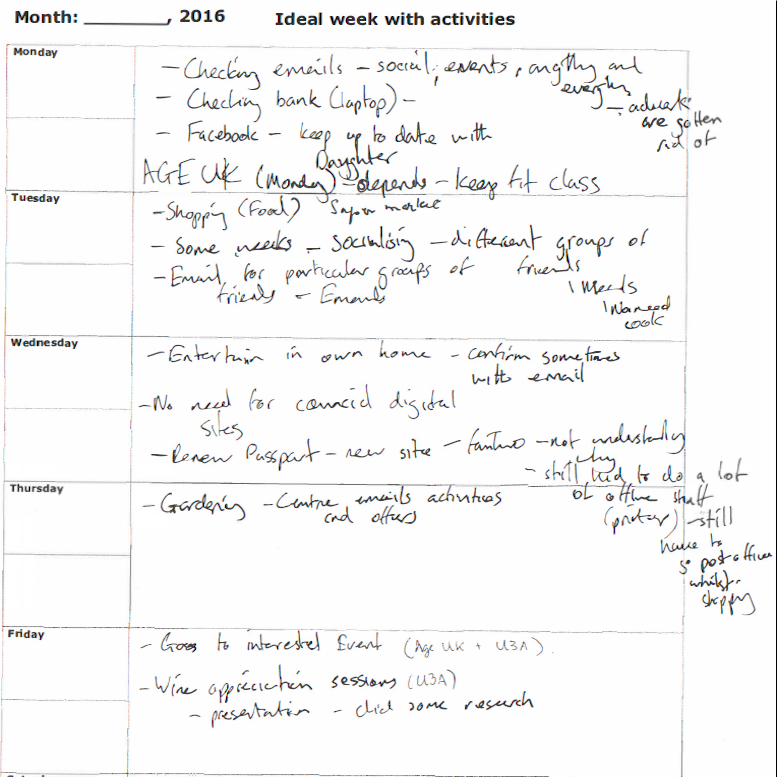 Month: __________, 2016 Ideal week with activities
Monday
- Checking emails - social, events, anything and
everything
- adverts
are gotten
rid of
- Checking bank (laptop) -
- Facebook - keep up to date with
Daughter
AGE UK (Monday) - depends - keep fit class
Tuesday
- Shopping (Food) Super market
- Some weeks - socialising - different groups of
friends
- Email for particular groups of
friends - Emails
Wednesday
- Entertain in own home - confirm sometimes
with email
- No need for council digital
sites
- Renew Passport - new site - - not understanding
why
- still had to do a lot
of offline stuff
(printer) - still
have to
go post office
whilst
shopping
Thursday
- Gardening - Centre emails activities
and offers
Friday
- Goes to interested Event (Age UK + U3A).
- Wine appreciation sessions (U3A)
- presentation - did some research